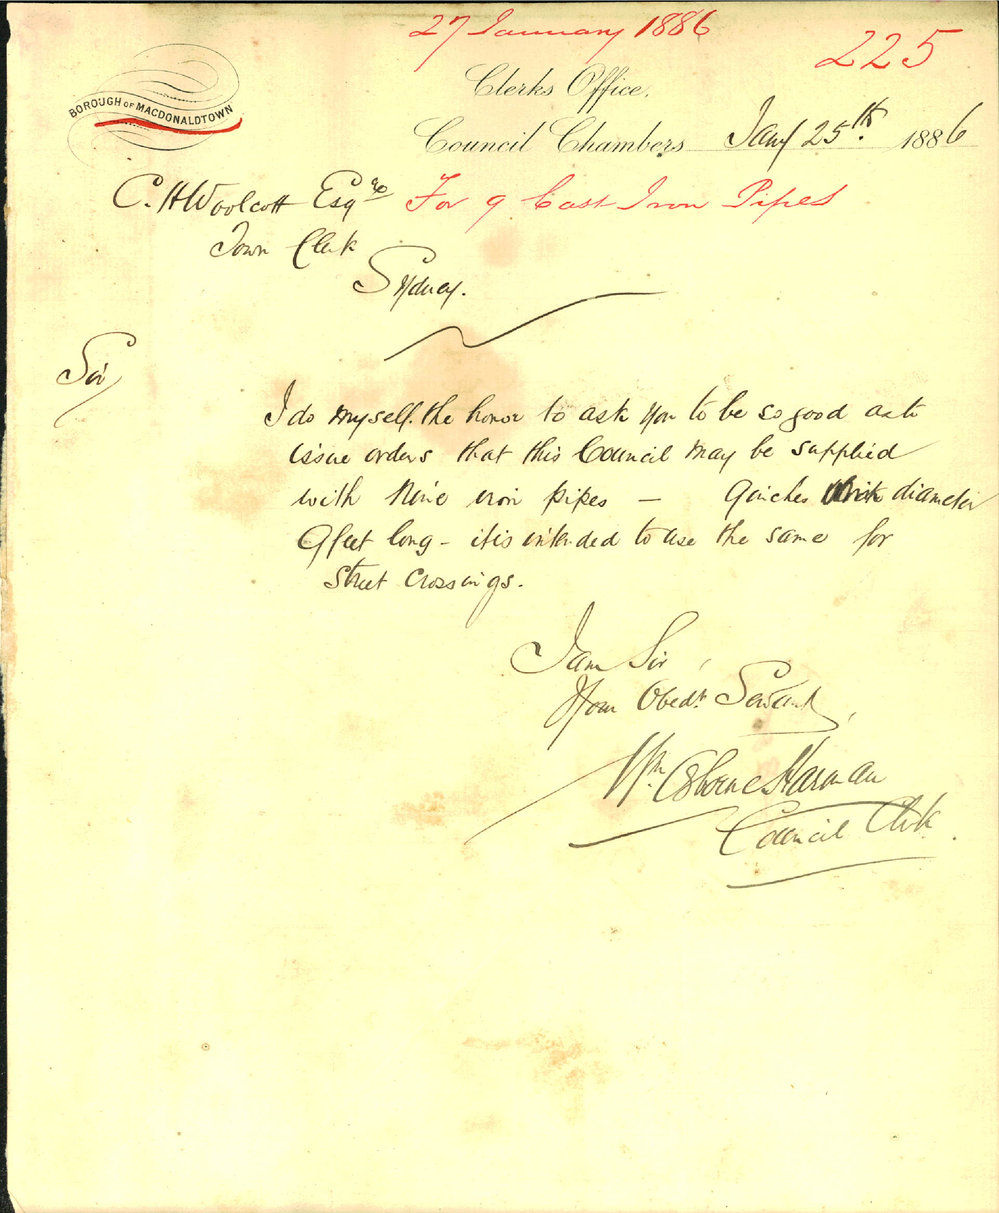 27 January 1886
225
BOROUGH OF MACDONALDTOWN
Clerks Office,
Council Chambers Jany 25th 1886
C. H Woolcott Esqre For 9 Cast Iron Pipes
Town Clerk
Sydney.
Sir
I do myself the honor to ask you to be so good as to
issue orders that this Council may be supplied
with Nine iron pipes — 9 inches diameter
9 feet long - it is intended to use the same for
Street Crossings.
I am Sir,
Your Obedt. Servant,
Wm. Osborne Harman
Council Clerk.